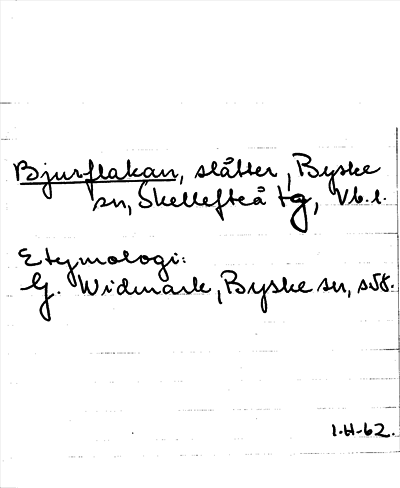 Bjurflakan, slåtter, Byske
sn, Skellefteå tg, Vb.l.
Etymologi:
G. Widmark, Byske sn, s
1.H-62.